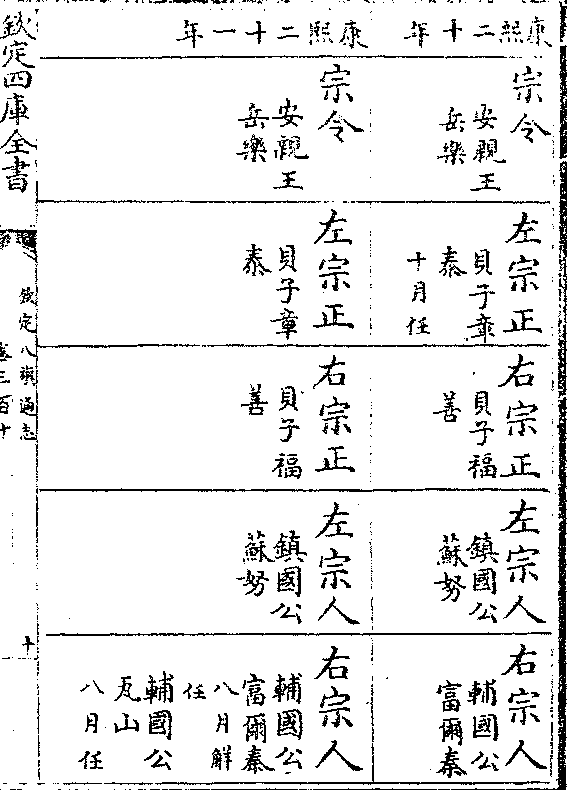 康熙二十年
宗令
安親王
岳樂
左宗正
貝子章
泰
十月任
右宗正
貝子福
善
左宗人
鎮國公
蘇努
右宗人
輔國公
富爾泰
康熙二十一年
宗令
安親王
岳樂
左宗正
貝子章
泰
右宗正
貝子福
善
左宗人
鎮國公
蘇努
右宗人
輔國公
富爾泰
八月解
任
輔國公
瓦山
八月任
欽定四庫全書
欽定八旗通志
卷三百十
十